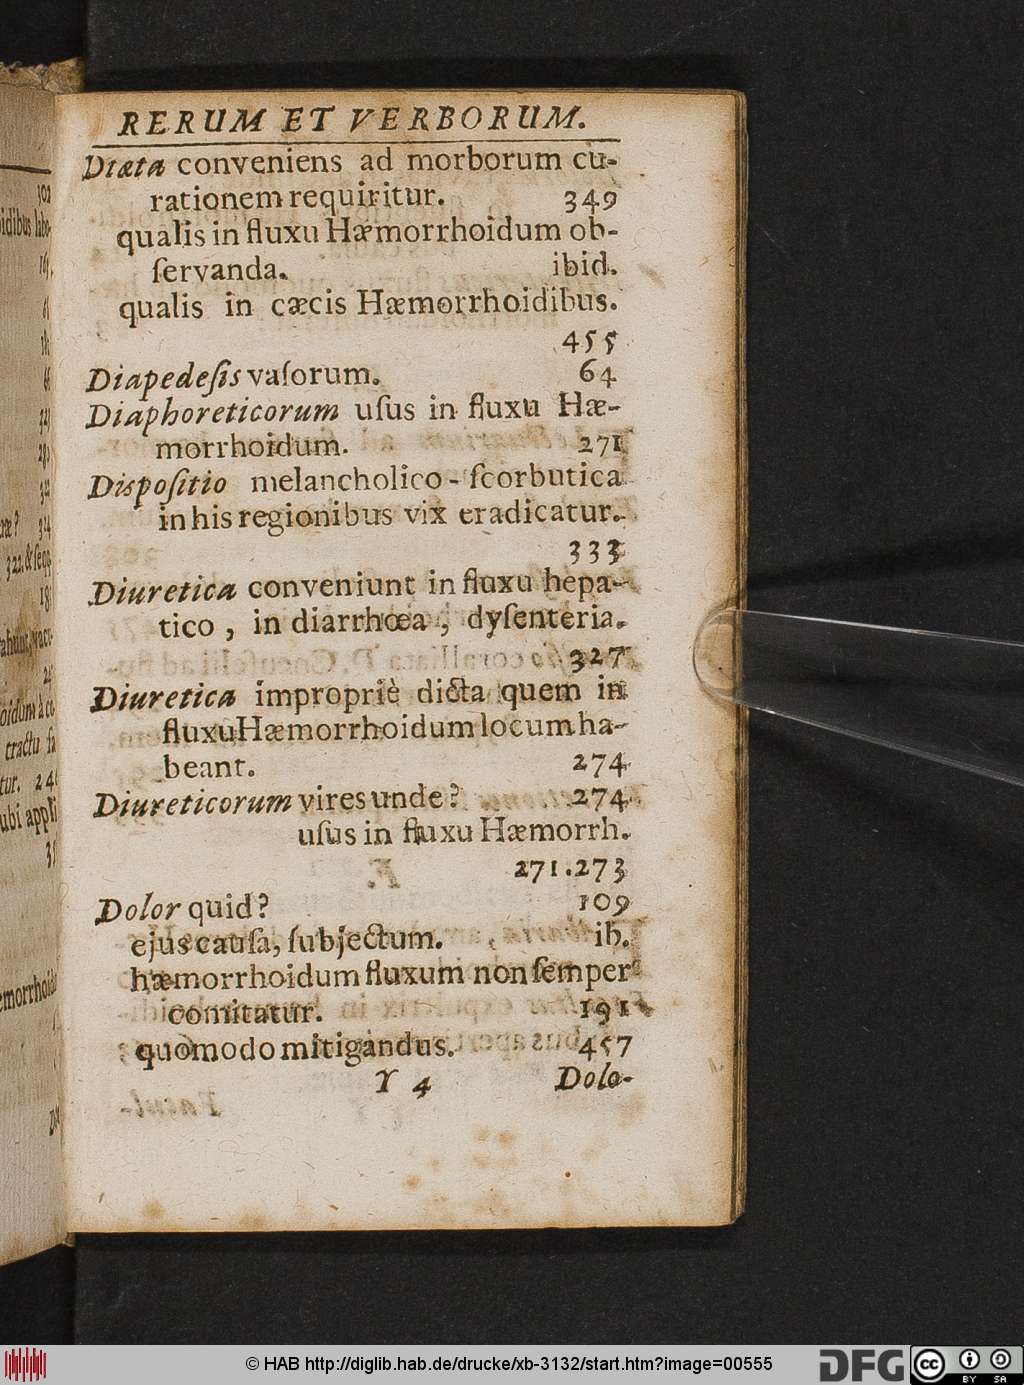 RERUM ET VERBORUM.
Diæta conveniens ad morborum cu-
rationem requiritur. 349
qualis in fluxu Hæmorrhoidum ob-
ſervanda. ibid.
qualis in cæcis Hæmorrhoidibus.
455
Diapedeſis vaſorum. 64
Diaphoreticorum uſus in fluxu Hæ-
morrhoidum. 271
Dispoſitio melancholico-ſcorbutica
in his regionibus vix eradicatur.
333
Diuretica conveniunt in fluxu hepa-
tico, in diarrhœa, dyſenteria.
327
Diuretica impropriè dicta quem in
fluxu Hæmorrhoidum locum ha-
beant. 274
Diureticorum vires unde? 274
uſus in fluxu Hæmorrh.
271.273
Dolor quid? 109
ejus cauſa, ſubjectum. ib.
hæmorrhoidum fluxum non ſemper
comitatur. 191
quomodo mitigandus. 457
Y 4 Dolo-
© HAB http://diglib.hab.de/drucke/xb-3132/start.htm?image=00555
DFG
cc BY SA